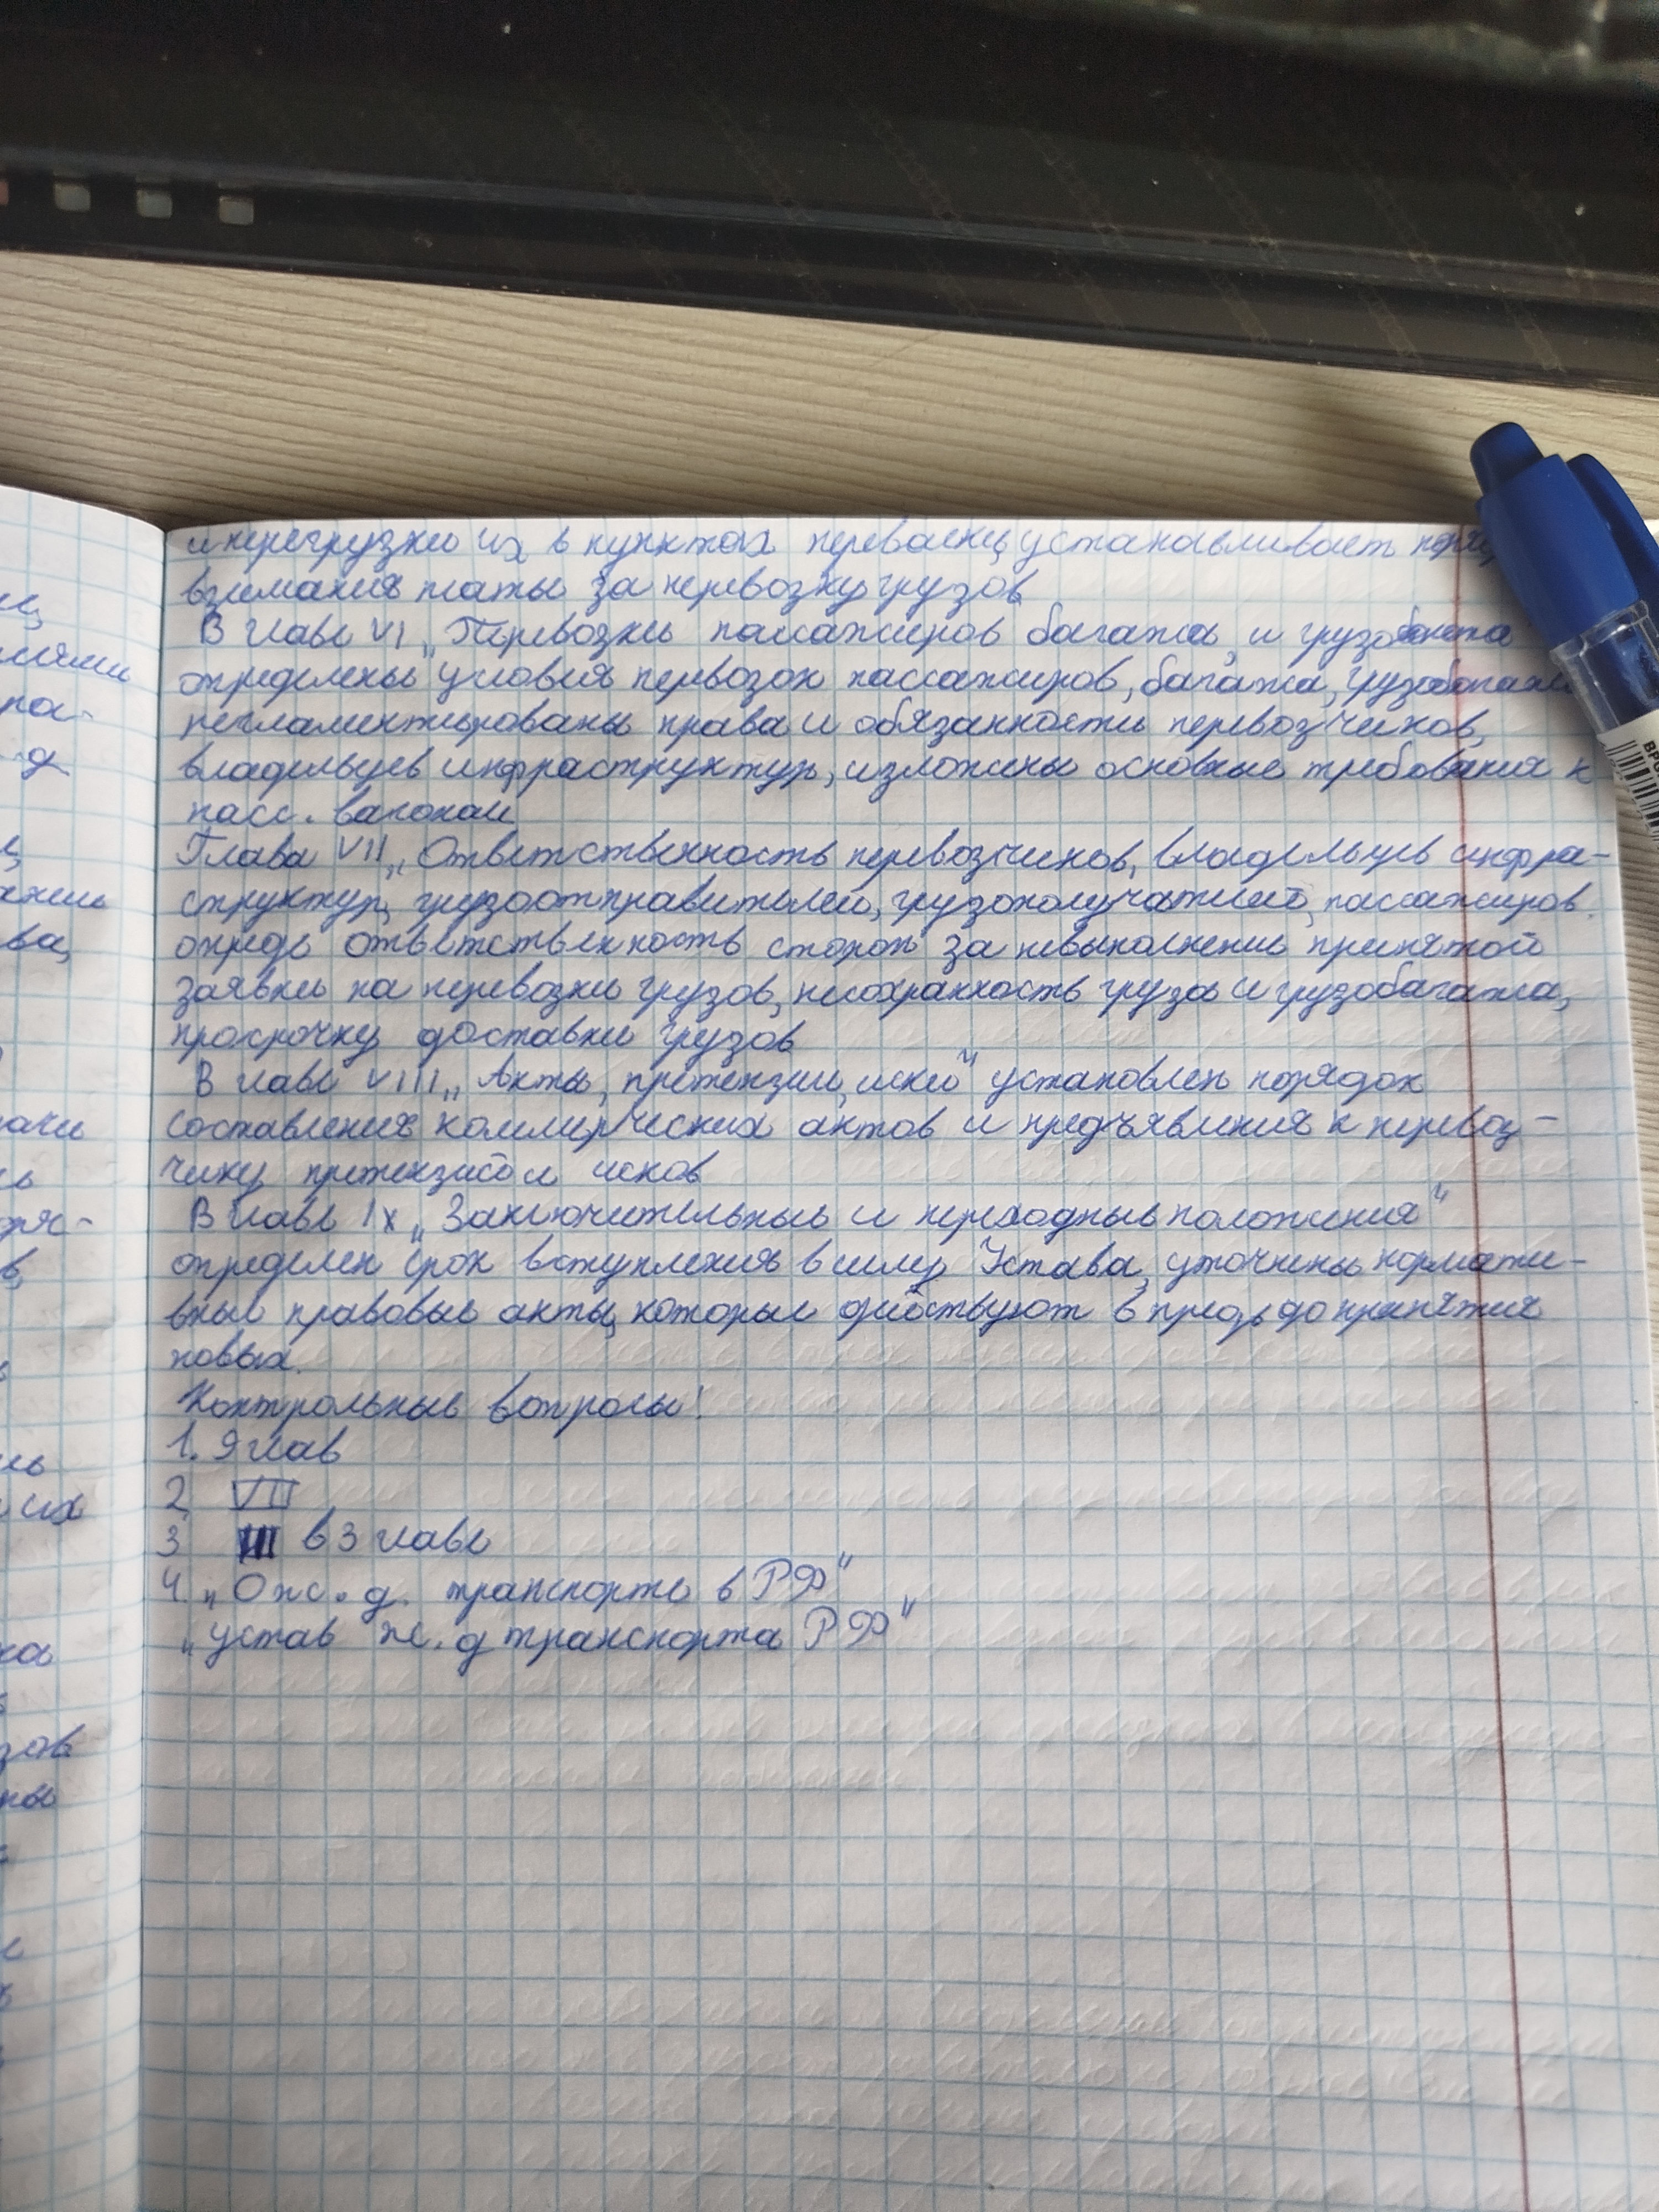 и перегрузки их в пунктах перевалки, устанавливает
взимания платы за перевозку грузов
В главе VI „Перевозки пассажиров багажа, и грузобагажа
определены условия перевозок пассажиров, багажа, грузобагажа
регламентированы права и обязанности перевозчиков,
владельцев инфраструктур, изложены основные требования к
пасс. вагонам
Глава VII „Ответственность перевозчиков, владельцев инфра-
структур, грузоотправителей, грузополучателей, пассажиров.
опредь ответственность сторон за невыполнение принятой
заявки на перевозки грузов, несохранность груза и грузобагажа,
просрочку доставки грузов
В главе VIII „Акты, претензии, иски" установлен порядок
составления коммерческих актов и предъявления к перевоз-
чику претензий и исков
В главе IX „Заключительные и переходные положения"
определен срок вступления в силу Устава, уточнены нормати-
вные правовые акты, которые действуют в предь до принятия
новых.
Контрольные вопросы!
1. 9 глав
2 VII
3 III в 3 главе
4. „О ж. д. транспорте в РФ"
„устав ж. д транспорта РФ"
ва,
их
ка
зов